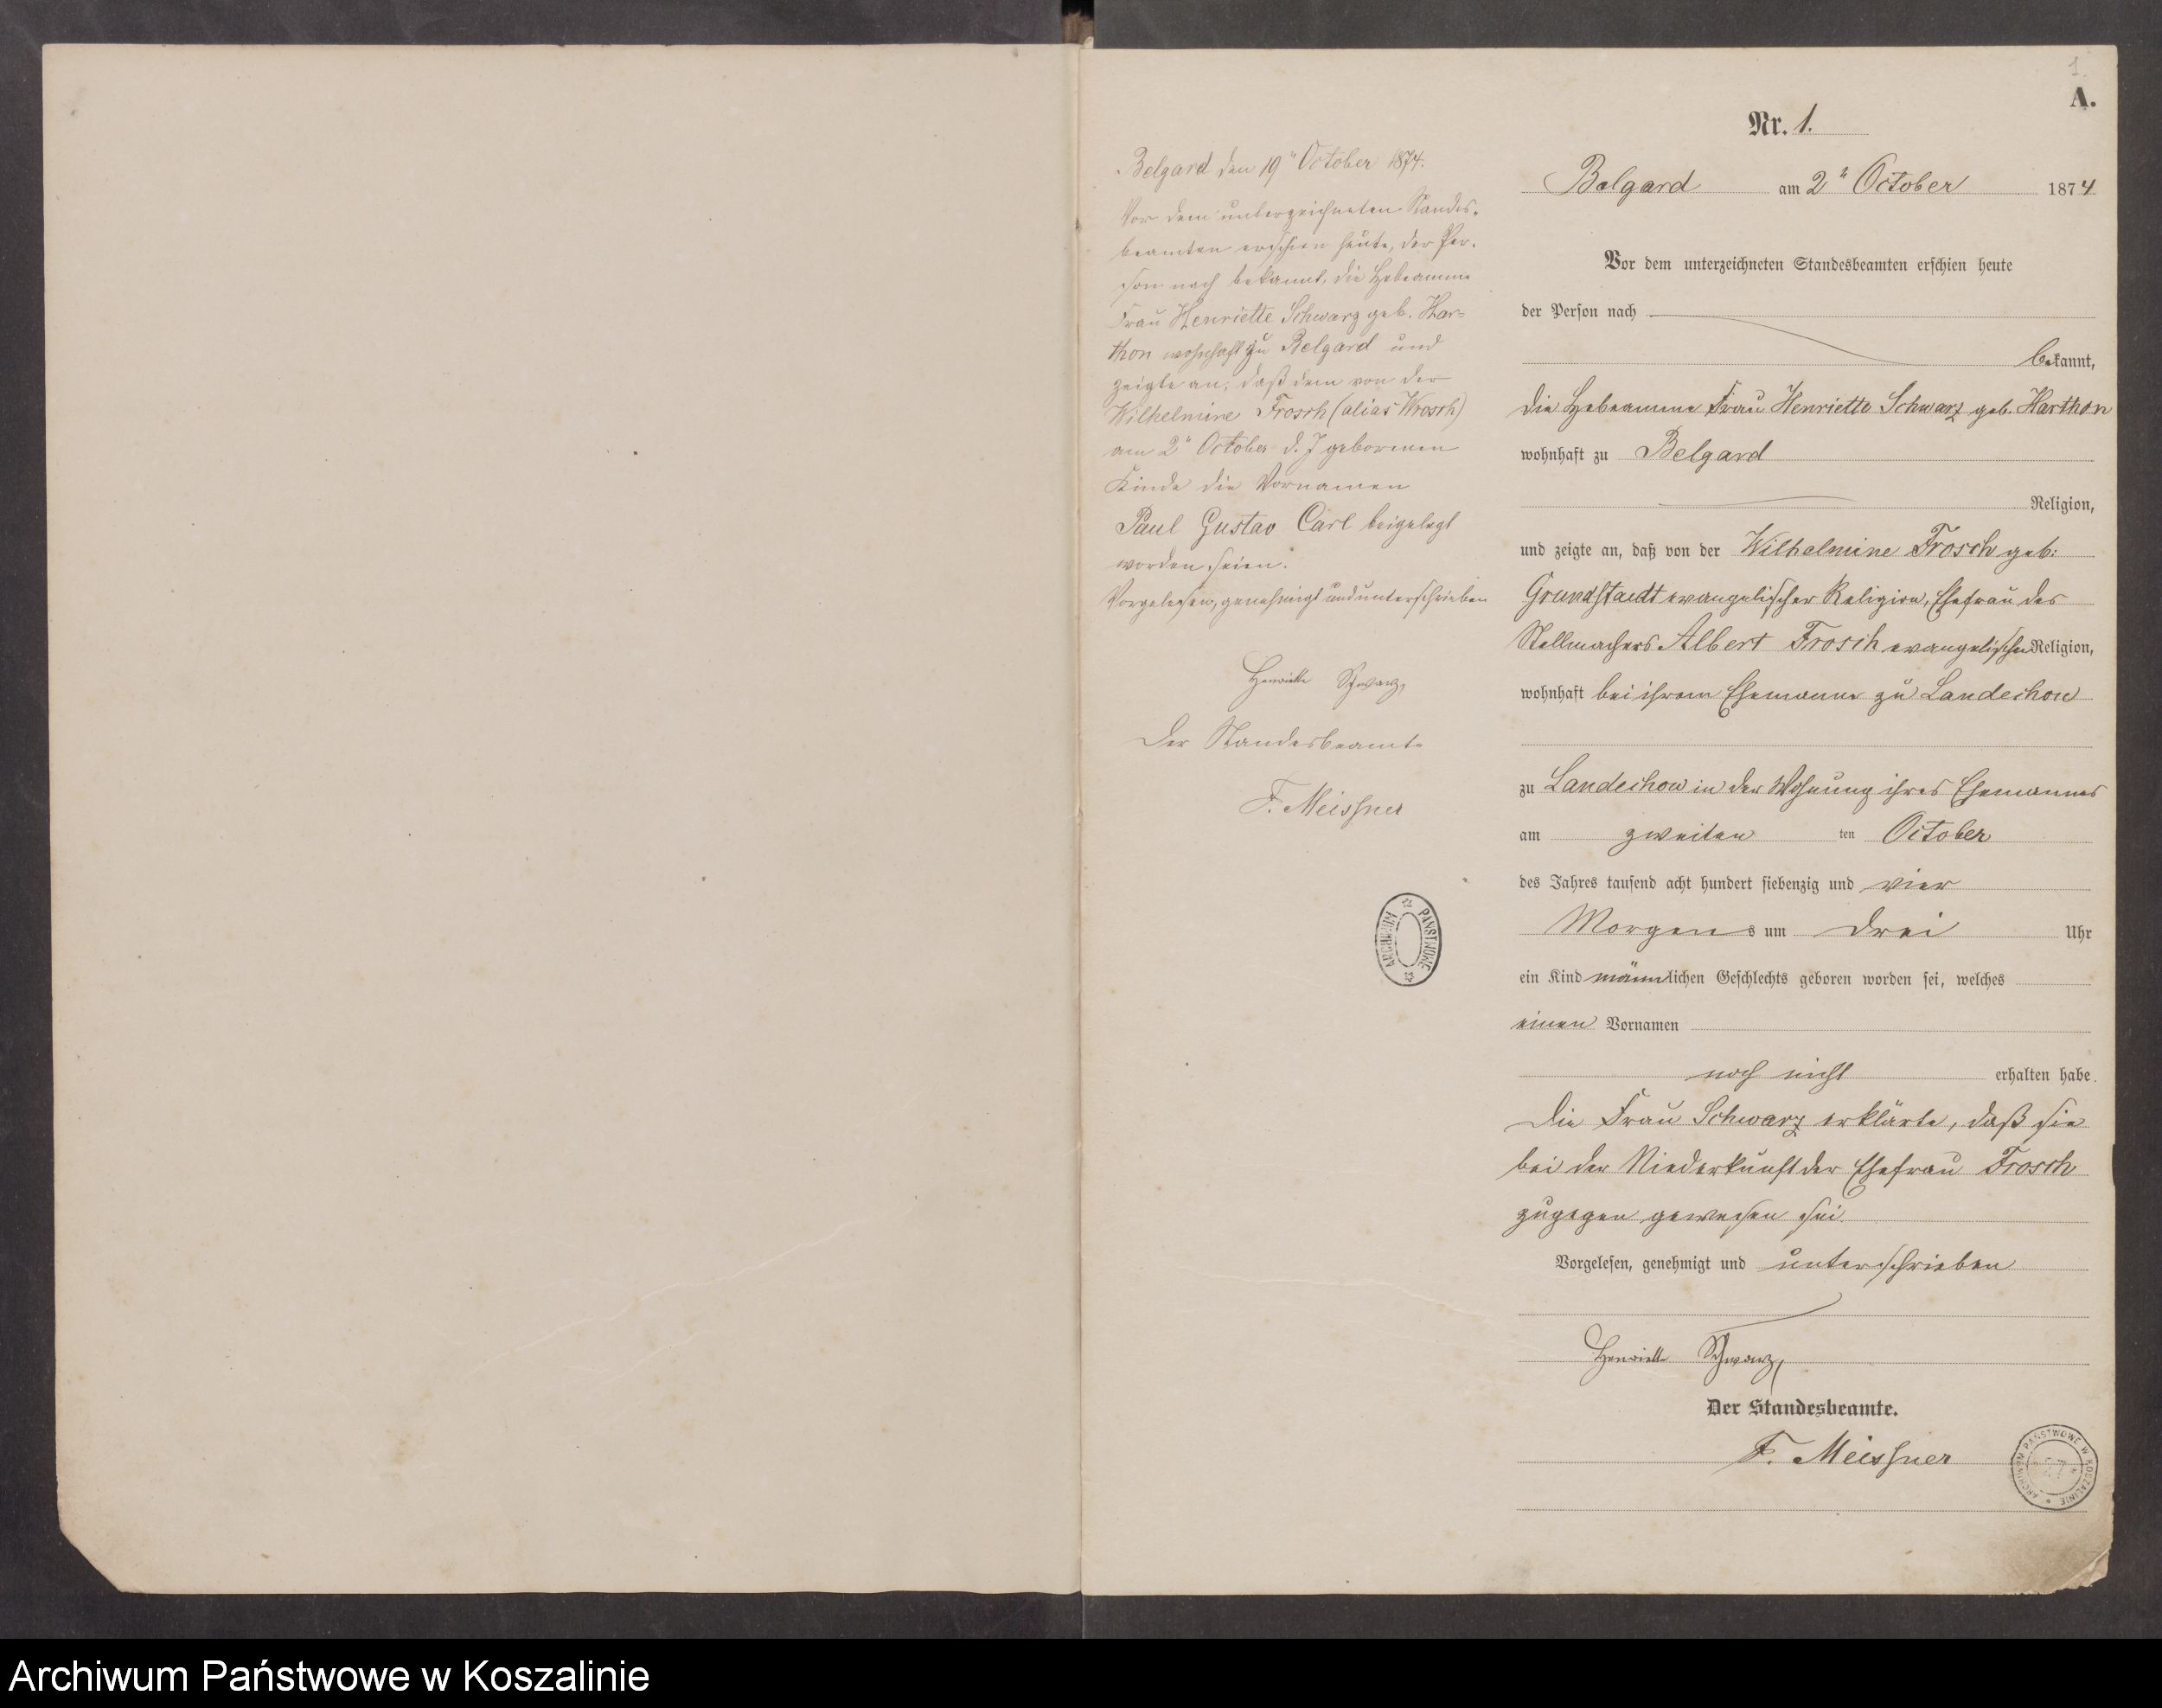 1.
A.
Nr. 1.
Belgard am 2ᵗ October 1874
Vor dem unterzeichneten Standesbeamten erschien heute
der Person nach
bekannt,
die Hebeamme Frau Henriette Schwarz geb. Harthon
wohnhaft zu Belgard
Religion,
und zeigte an, daß von der Wilhelmine Frosch geb:
Grundstaedt evangelischer Religion, Ehefrau des
Stellmachers Albert Frosch evangelischer Religion,
wohnhaft bei ihrem Ehemanne zu Landechow
zu Landechow in der Wohnung ihres Ehemannes
am zweiten ten October
des Jahres tausend acht hundert siebenzig und vier
Morgens um drei Uhr
ein Kind männlichen Geschlechts geboren worden sei, welches
einen Vornamen
noch nicht erhalten habe.
Die Frau Schwarz erklärte, daß sie
bei der Niederkunft der Ehefrau Frosch
zugegen gewesen sei.
Vorgelesen, genehmigt und unterschrieben
Henriette Schwarz,
Der Standesbeamte.
F. Meissner
Belgard den 19ᵗ October 1874.
Vor dem unterzeichneten Standes-
beamten erschien heute, der Per-
son nach bekannt, die Hebeamme
Frau Henriette Schwarz geb. Har=
thon wohnhaft zu Belgard und
zeigte an, daß dem von der
Wilhelmine Frosch (alias Wrosch)
am 2ᵗ October d. J. geborenen
Kinde die Vornamen
Paul Gustav Carl beigelegt
worden seien.
Vorgelesen, genehmigt und unterschrieben
Henriette Schwarz,
Der Standesbeamte
F. Meissner
ARCHIWUM PAŃSTWOWE
ARCHIWUM PAŃSTWOWE W KOSZALINIE
Archiwum Państwowe w Koszalinie